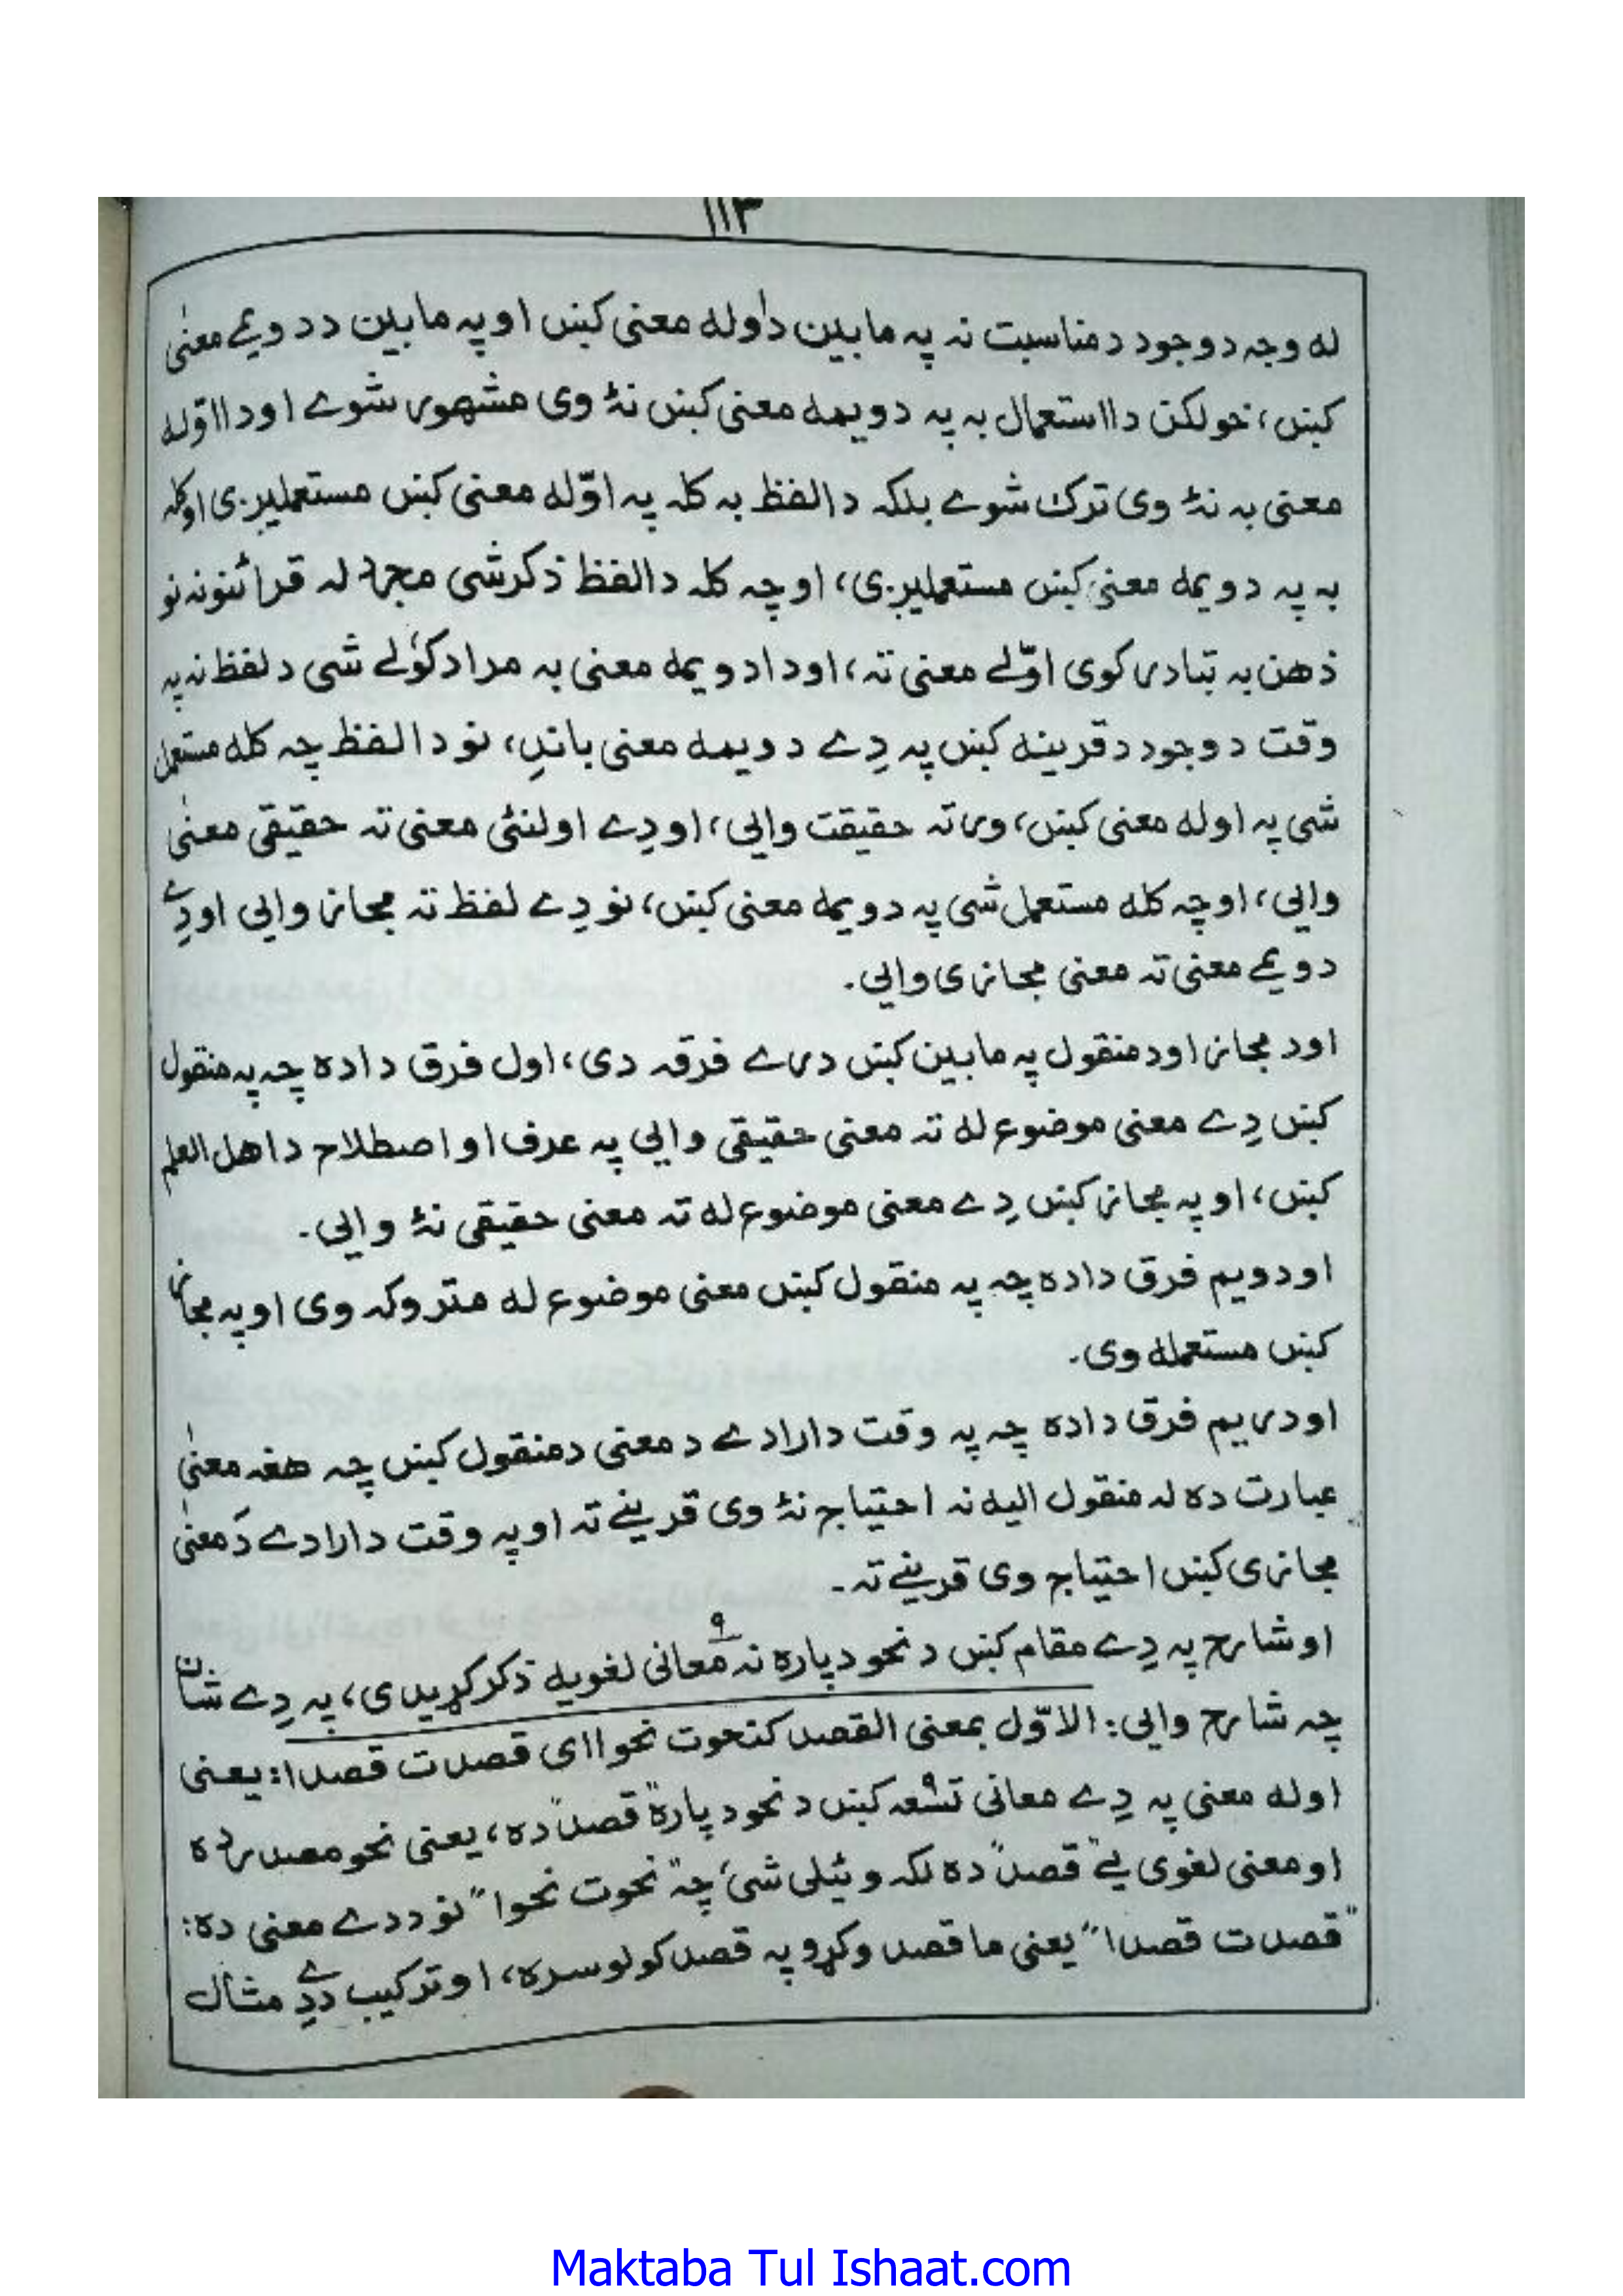 ١١٣
له وجہ د وجود د مناسبت نہ پہ مابین د اوله معنی کښ او پہ مابین د دویمے معنیٰ
کښ، خو لکن دا استعمال بہ پہ دویمه معنی کښ نۀ وی مشهور شوے او دا اوّله
معنی بہ نۀ وی ترک شوے بلکہ دا لفظ بہ کلہ پہ اوّله معنی کښ مستعملیږی او کلہ
بہ پہ دویمه معنیٰ کښ مستعملیږی، او چہ کلہ دا لفظ ذکر شی مجرد لہ قرائنونہ نو
ذهن بہ تبادر کوی اوّلے معنی تہ، او دا دویمه معنی بہ مراد کوٗلے شی د لفظ نہ پہ
وقت د وجود د قرینه کښ پہ دِے دویمه معنی باندِ، نو دا لفظ چہ کله مستعمل
شی پہ اوله معنی کښ، ورتہ حقیقت وایی، او دِے اولنئی معنی تہ حقیقی معنیٰ
وایی، او چہ کله مستعمل شی پہ دویمه معنی کښ، نو دِے لفظ تہ مجاز وایی او دِے
دویمے معنی تہ معنی مجازی وایی۔
او د مجاز او د منقول پہ مابین کښ درے فرقہ دی، اول فرق دا ده چہ پہ منقول
کښ دِے معنی موضوع له تہ معنی حقیقی وایی پہ عرف او اصطلاح د اهل العلم
کښ، او پہ مجاز کښ دِے معنی موضوع له تہ معنی حقیقی نۀ وایی۔
او دویم فرق دا ده چہ پہ منقول کښ معنی موضوع له متروکہ وی او پہ مجاز
کښ مستعمله وی۔
او دریم فرق دا ده چہ پہ وقت د ارادے د معنی د منقول کښ چہ هغہ معنیٰ
عبارت ده لہ منقول الیه نہ احتیاج نۀ وی قرینے تہ او پہ وقت د ارادے دَ معنیٰ
مجازی کښ احتیاج وی قرینے تہ۔
او شارح پہ دِے مقام کښ د نحو د پاره نہ ٩ معانی لغویه ذکر کړیدی، پہ دِے شان
چہ شارح وایی: الاوّل بمعنی القصد کنحوت نحوا ای قصدت قصدا: یعنی
اوله معنی پہ دِے معانی تسْعہ کښ د نحو د پارہ "قصد" ده، یعنی نحو مصدر ده
او معنی لغوی یے "قصد" ده لکہ وئیلی شی چہ "نحوت نحوا" نو د دے معنی ده:
"قصدت قصدا" یعنی ما قصد وکړو پہ قصد کولو سره، او ترکیب د دِے مثال
Maktaba Tul Ishaat.com